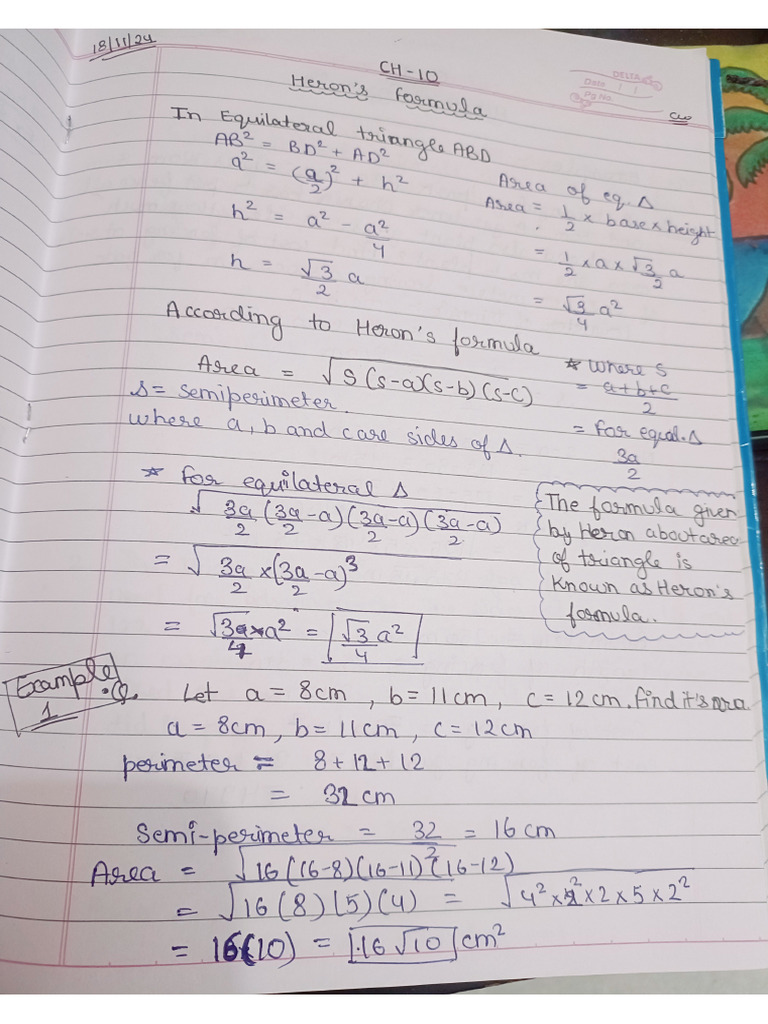 18/11/24
CH-10
DELTA
Date / /
Pg No.
Heron's formula
CW
In Equilateral triangle ABD
AB² = BD² + AD²
a² = (a/2)² + h²
h² = a² - a²/4
h = √3/2 a
Area of eq. Δ
Area = 1/2 × base × height
= 1/2 × a × √3/2 a
= √3/4 a²
According to Heron's formula
Area = √S(s-a)(s-b)(s-c)
s = semiperimeter.
where a, b and c are sides of Δ.
* where s
= a+b+c/2
= for equal. Δ
3a/2
* for equilateral Δ
√3a/2 (3a/2 -a) (3a/2 -a) (3a/2 -a)
= √3a/2 × (3a/2 -a)³
= √3/4 a² = √3/4 a²
The formula given
by Heron about area
of triangle is
known as Heron's
formula.
Example 1
Q. Let a = 8cm , b = 11cm, c = 12cm. find it's area
a = 8cm, b = 11cm, c = 12cm
perimeter = 8+12+12
= 32 cm
Semi-perimeter = 32/2 = 16 cm
Area = √16(16-8)(16-11)(16-12)
= √16(8)(5)(4) = √4²×2²×2×5×2²
= 16(10) = 16√10 cm²